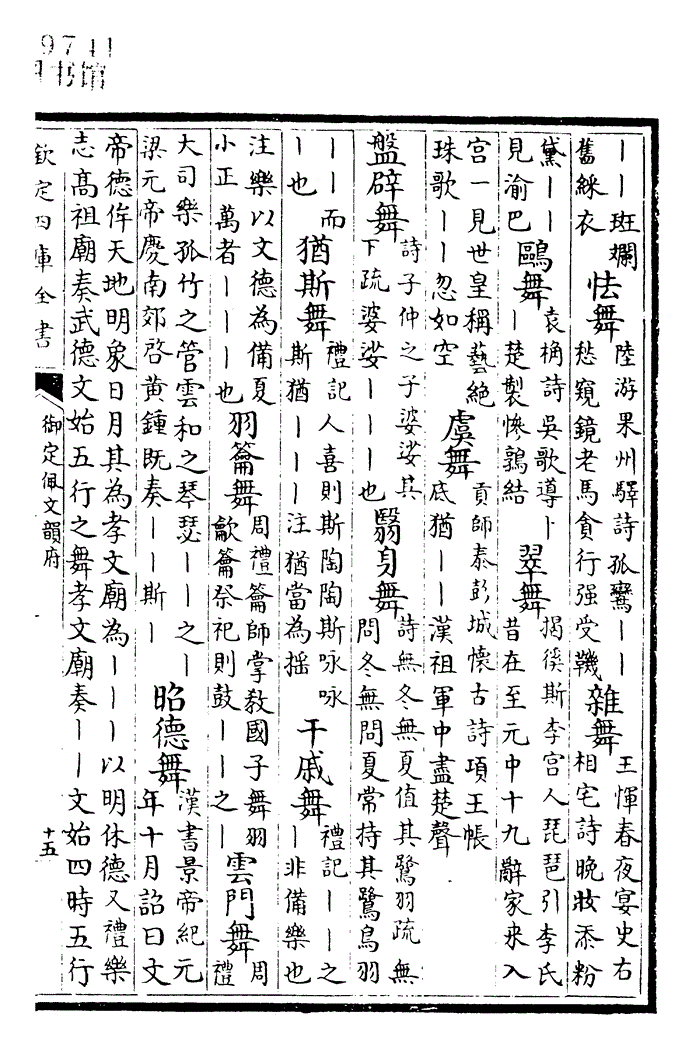 9741
书馆
丨丨斑斕
舊綵衣
怯舞
陸游果州驛詩孤鸞丨丨
愁窺鏡老馬貪行强受鞿
雜舞
王惲春夜宴史右
相宅詩晚妝添粉
黛丨丨
見渝巴
鷗舞
袁桷詩吳歌導丨
丨楚製慘鶉結
翠舞
揭徯斯李宫人琵琶引李氏
昔在至元中十九辭家来入
宫一見世皇稱藝絶
珠歌丨丨忽如空
虞舞
貢師泰彭城懷古詩項王帳
底猶丨丨漢祖軍中盡楚聲
盤辟舞
詩子仲之子婆娑其
下疏婆娑丨丨丨也
翳身舞
詩無冬無夏值其鷺羽疏無
問冬無問夏常持其鷺鳥羽
丨丨而
丨也
猶斯舞
禮記人喜則斯陶陶斯咏咏
斯猶丨丨丨注猶當為摇
干戚舞
禮記丨丨之
丨非備樂也
注樂以文德為備夏
小正萬者丨丨丨也
羽籥舞
周禮籥師掌敎國子舞羽
龡籥祭祀則鼓丨丨之丨
雲門舞
周
禮
大司樂孤竹之管雲和之琴瑟丨丨之丨
梁元帝慶南郊啓黄鍾既奏丨丨斯丨
昭德舞
漢書景帝紀元
年十月詔曰文
帝德侔天地明象日月其為孝文廟為丨丨丨以明休德又禮樂
志髙祖廟奏武德文始五行之舞孝文廟奏丨丨文始四時五行
欽定四庫全書
御定佩文韻府
十五